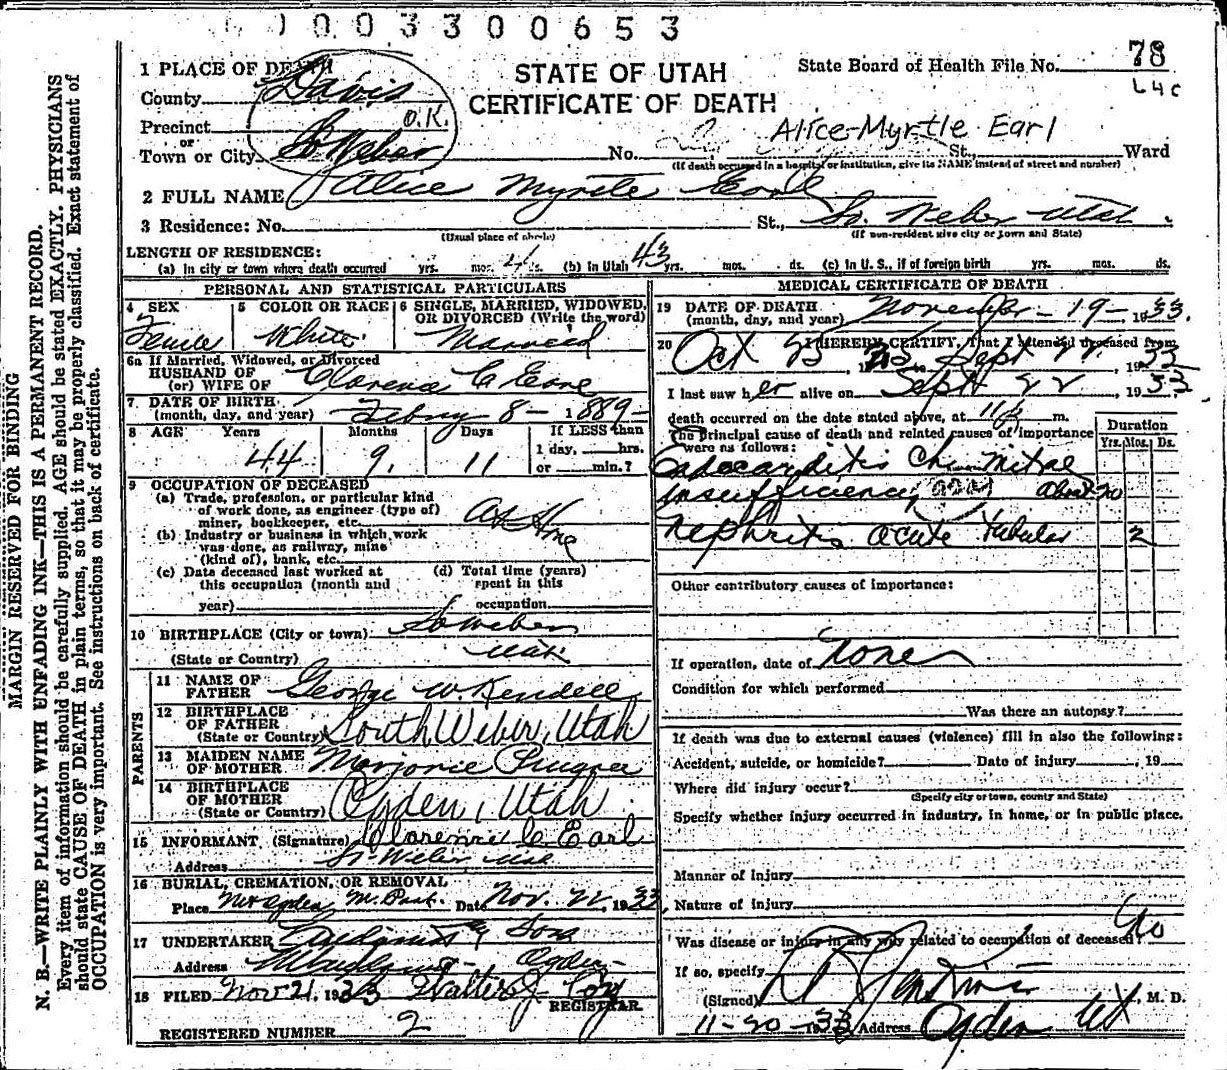 0 0 3 3 0 0 6 5 3
STATE OF UTAH
CERTIFICATE OF DEATH
State Board of Health File No. 78
L4C
1 PLACE OF DEATH
County Davis
Precinct O.K.
or
Town or City So Weber No. St., Ward
Alice Myrtle Earl
(If death occurred in a hospital or institution, give its NAME instead of street and number)
2 FULL NAME Alice Myrtle Earl
3 Residence: No. St., So. Weber Utah
(Usual place of abode) (If non-resident give city or town and State)
LENGTH OF RESIDENCE:
(a) In city or town where death occurred yrs. mos. ds. (b) in Utah 43 yrs. mos. ds. (c) in U. S., if of foreign birth yrs. mos. ds.
PERSONAL AND STATISTICAL PARTICULARS
4 SEX 5 COLOR OR RACE 6 SINGLE, MARRIED, WIDOWED, OR DIVORCED (Write the word)
Female White Married
6a If Married, Widowed, or Divorced
HUSBAND OF
(or) WIFE OF Clarence C Earl
7 DATE OF BIRTH
(month, day, and year) Febry 8 - 1889-
8 AGE Years Months Days If LESS than
44 9. 11 1 day, hrs.
or min.?
9 OCCUPATION OF DECEASED
(a) Trade, profession, or particular kind
of work done, as engineer (type of)
miner, bookkeeper, etc. At Home
(b) Industry or business in which work
was done, as railway, mine
(kind of), bank, etc.
(c) Date deceased last worked at (d) Total time (years)
this occupation (month and spent in this
year) occupation
10 BIRTHPLACE (City or town) So Weber
(State or Country) Utah
PARENTS
11 NAME OF
FATHER George W. Kendell
12 BIRTHPLACE
OF FATHER
(State or Country) South Weber, Utah
13 MAIDEN NAME
OF MOTHER Marjorie
14 BIRTHPLACE
OF MOTHER
(State or Country) Ogden, Utah
15 INFORMANT (Signature) Clarence C Earl
Address So. Weber Utah
16 BURIAL, CREMATION, OR REMOVAL
Place Mt Ogden M. Park. Date Nov. 22, 1933
17 UNDERTAKER & Sons
Address Ogden
18 FILED Nov 21. 1933 Walter J. Cox
REGISTRAR
REGISTERED NUMBER 2
MEDICAL CERTIFICATE OF DEATH
19 DATE OF DEATH
(month, day, and year) November - 19 - 1933.
20 I HEREBY CERTIFY, That I attended deceased from
Oct 25 to Sept 22, 1933
I last saw her alive on Sept 22, 1933
death occurred on the date stated above, at m.
The principal cause of death and related causes of importance
were as follows:
Duration
Yrs. Mos. Ds.
Endocarditis Ch. Mitral
insufficiency about 20
Nephritis acute tubular 2
Other contributory causes of importance:
If operation, date of none
Condition for which performed
Was there an autopsy?
If death was due to external causes (violence) fill in also the following:
Accident, suicide, or homicide? Date of injury , 19
Where did injury occur?
(Specify city or town, county and State)
Specify whether injury occurred in industry, in home, or in public place.
Manner of injury
Nature of injury
Was disease or injury in any way related to occupation of deceased? No
If so, specify
(Signed) , M. D.
11-20-1933 Address Ogden Ut
MARGIN RESERVED FOR BINDING
N. B.—WRITE PLAINLY WITH UNFADING INK—THIS IS A PERMANENT RECORD.
Every item of information should be carefully supplied. AGE should be stated EXACTLY. PHYSICIANS
should state CAUSE OF DEATH in plain terms, so that it may be properly classified. Exact statement of
OCCUPATION is very important. See instructions on back of certificate.